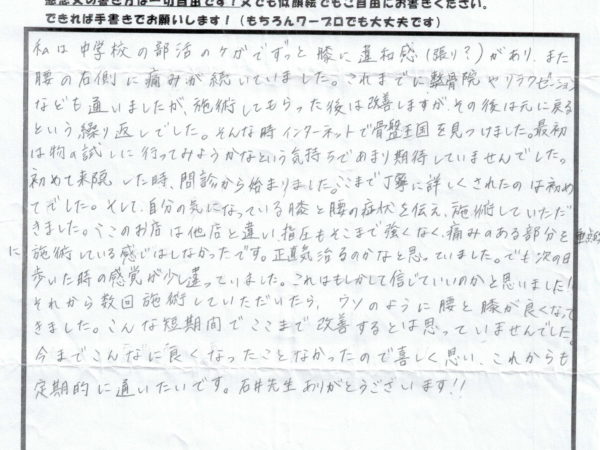 感想文の書き方は一切自由です！文でも似顔絵でもご自由にお書きください。
できれば手書きでお願いします！（もちろんワープロでも大丈夫です）
私は中学校の部活のケガでずっと膝に違和感(張り？)があり、また
腰の右側に痛みが続いていました。これまでに整骨院やリラクゼーション
なども通いましたが、施術してもらった後は改善しますが、その後は元に戻る
という繰り返しでした。そんな時インターネットで骨盤王国を見つけました。最初
は物の試しに行ってみようかなという気持ちであまり期待していませんでした。
初めて来院した時、問診から始まりました。ここまで丁寧に詳しくされたのは初め
てでした。そして、自分の気になっている膝と腰の症状を伝え、施術していただ
きました。ここのお店は他店と違い、指圧もそこまで強くなく、痛みのある部分を重点的
に施術している感じはしなかったです。正直気治るのかなと思っていました。でも次の日
歩いた時の感覚が少し違っていました。これはもしかして信じていいのかと思いました！
それから数回施術していただいたら、ウソのように腰と膝が良くなって
きました。こんな短期間でここまで改善するとは思っていませんでした。
今までこんなに良くなったことなかったので喜しく思い、これからも
定期的に通いたいです。石井先生ありがとうございます！！